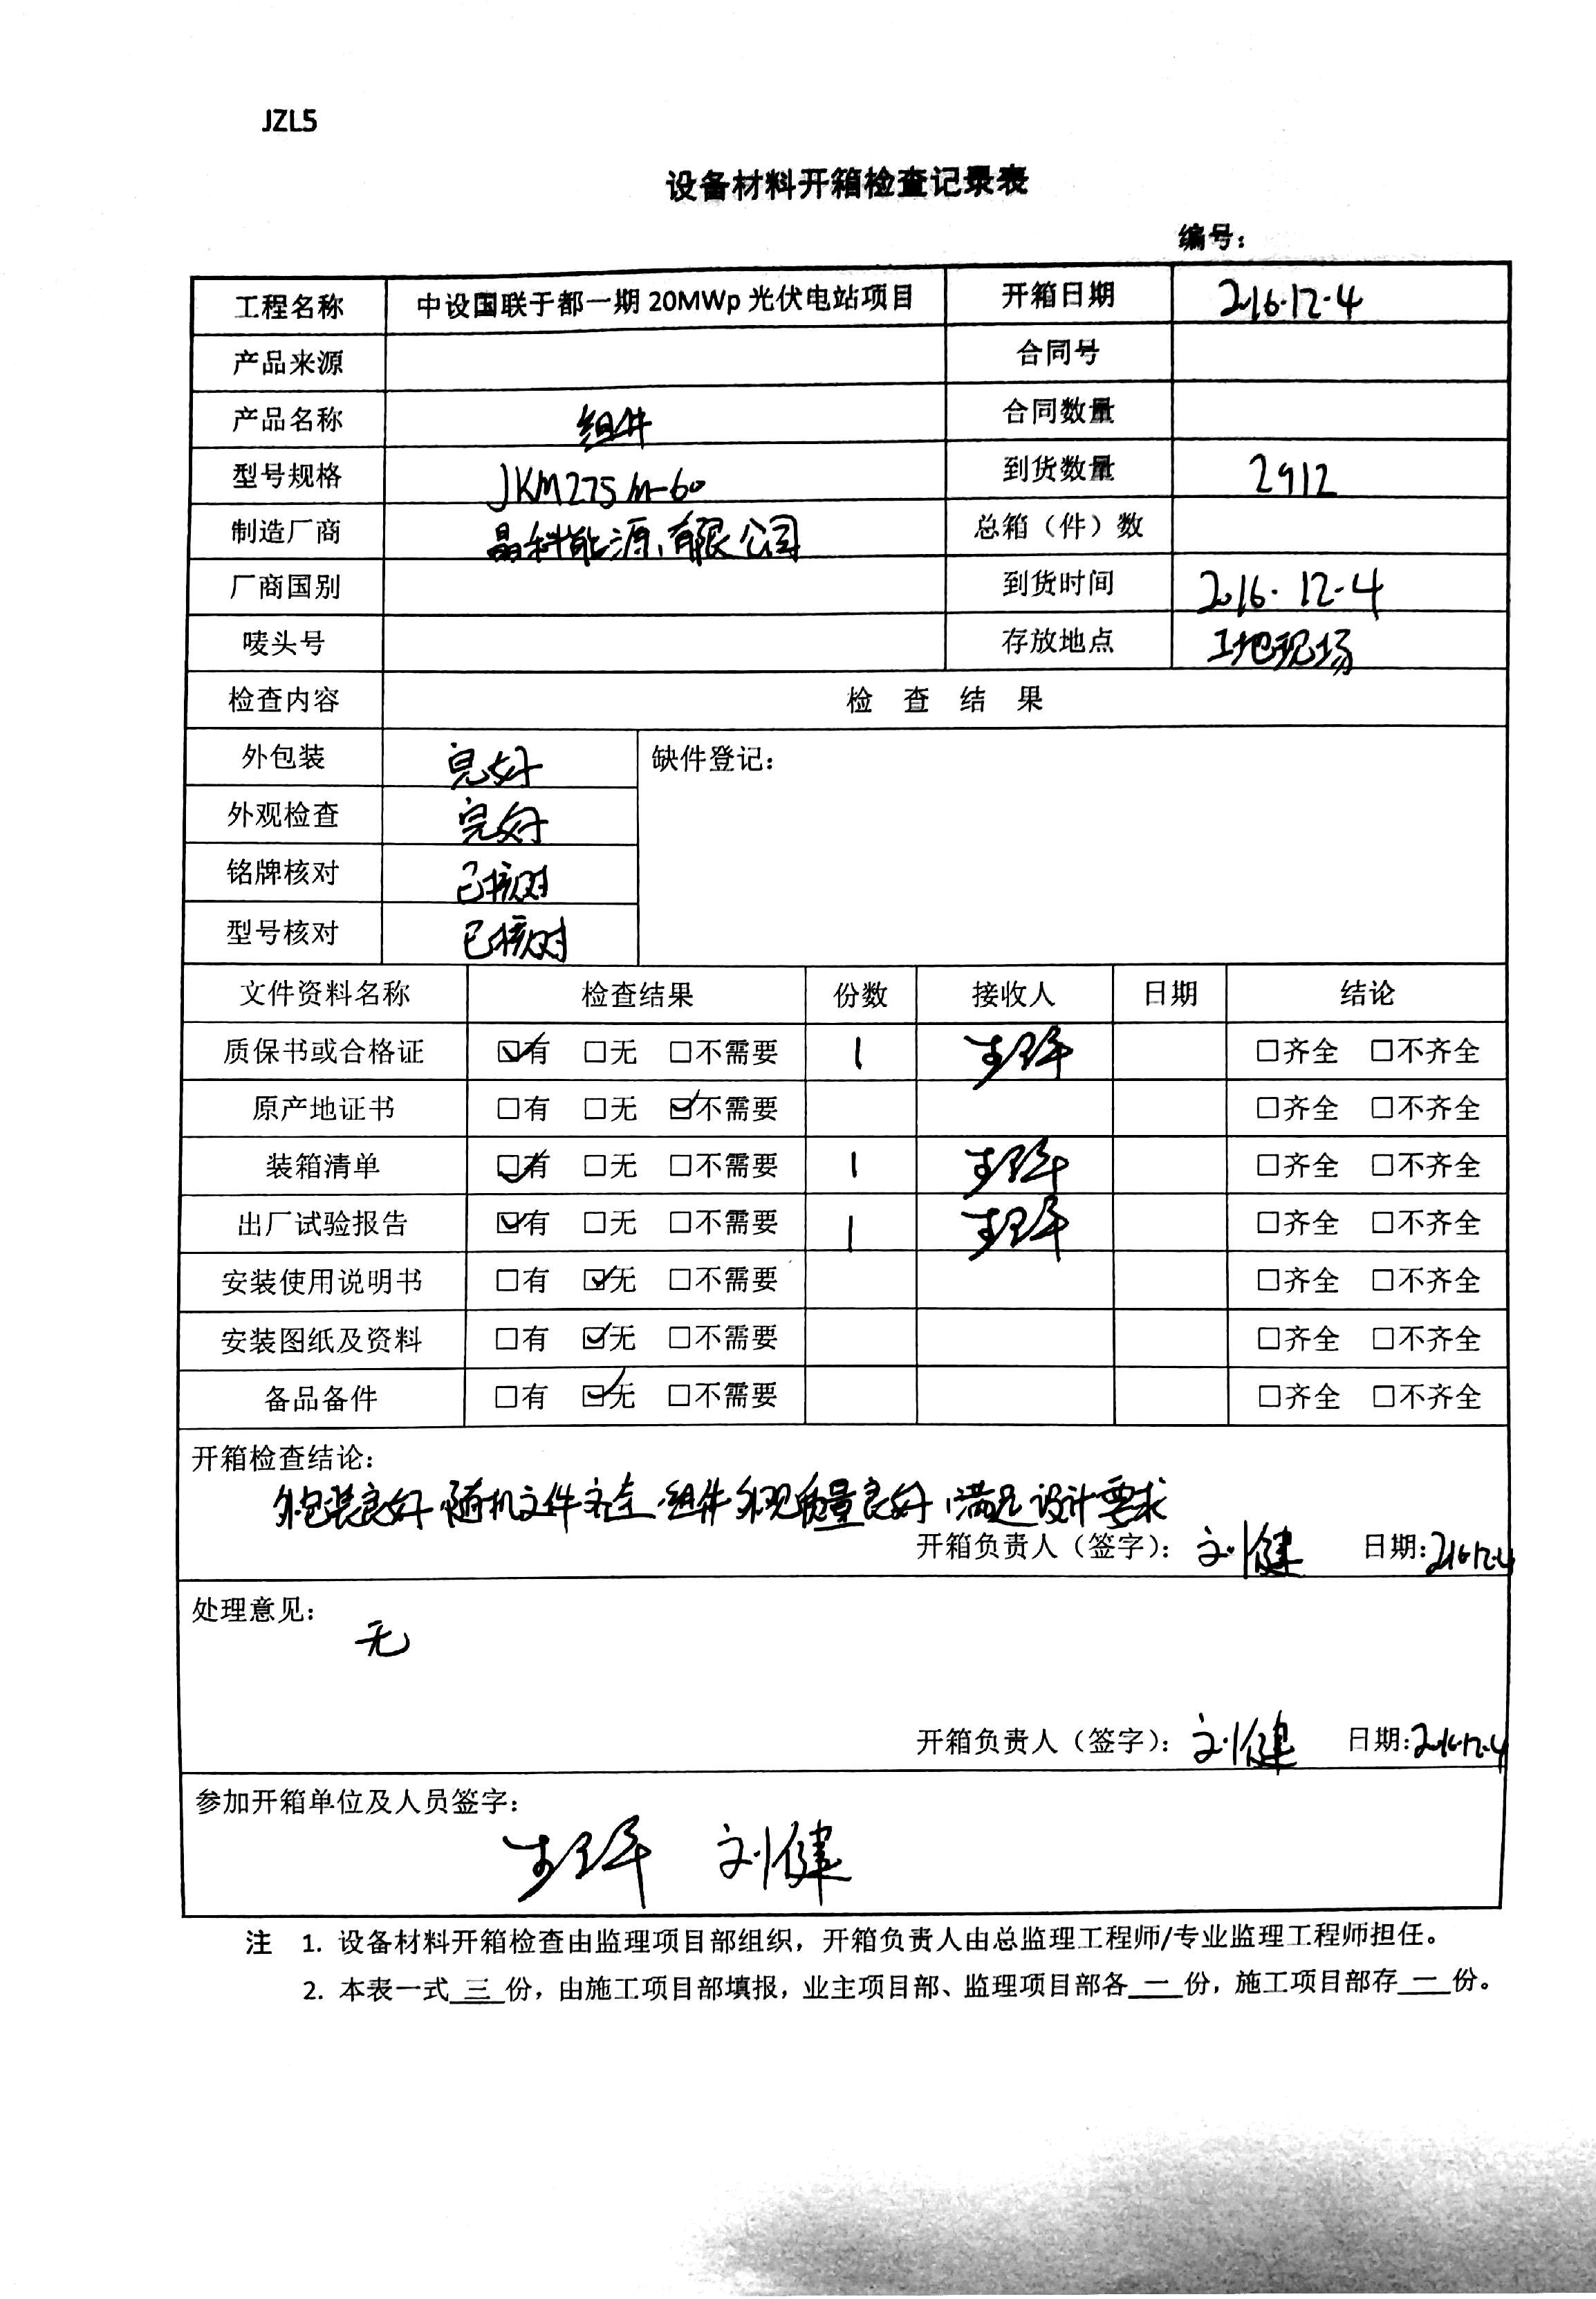 JZL5
设备材料开箱检查记录表
编号：
工程名称 中设国联于都一期 20MWp 光伏电站项目 开箱日期 2016.12.4
产品来源 合同号
产品名称 组件 合同数量
型号规格 JKM275M-60 到货数量 2912
制造厂商 晶科能源有限公司 总箱（件）数
厂商国别 到货时间 2016.12.4
唛头号 存放地点 工地现场
检查内容 检 查 结 果
外包装 完好 缺件登记：
外观检查 完好
铭牌核对 已核对
型号核对 已核对
文件资料名称 检查结果 份数 接收人 日期 结论
质保书或合格证 ☑有 □无 □不需要 1 □齐全 □不齐全
原产地证书 □有 □无 ☑不需要 □齐全 □不齐全
装箱清单 ☑有 □无 □不需要 1 □齐全 □不齐全
出厂试验报告 ☑有 □无 □不需要 1 □齐全 □不齐全
安装使用说明书 □有 ☑无 □不需要 □齐全 □不齐全
安装图纸及资料 □有 ☑无 □不需要 □齐全 □不齐全
备品备件 □有 ☑无 □不需要 □齐全 □不齐全
开箱检查结论：
外包装良好，随机文件齐全，组件外观质量良好，满足设计要求
开箱负责人（签字）： 刘健 日期：2016.12.4
处理意见：
无
开箱负责人（签字）： 刘健 日期：2016.12.4
参加开箱单位及人员签字：
刘健
注 1. 设备材料开箱检查由监理项目部组织，开箱负责人由总监理工程师/专业监理工程师担任。
2. 本表一式 三 份，由施工项目部填报，业主项目部、监理项目部各 一 份，施工项目部存 一 份。